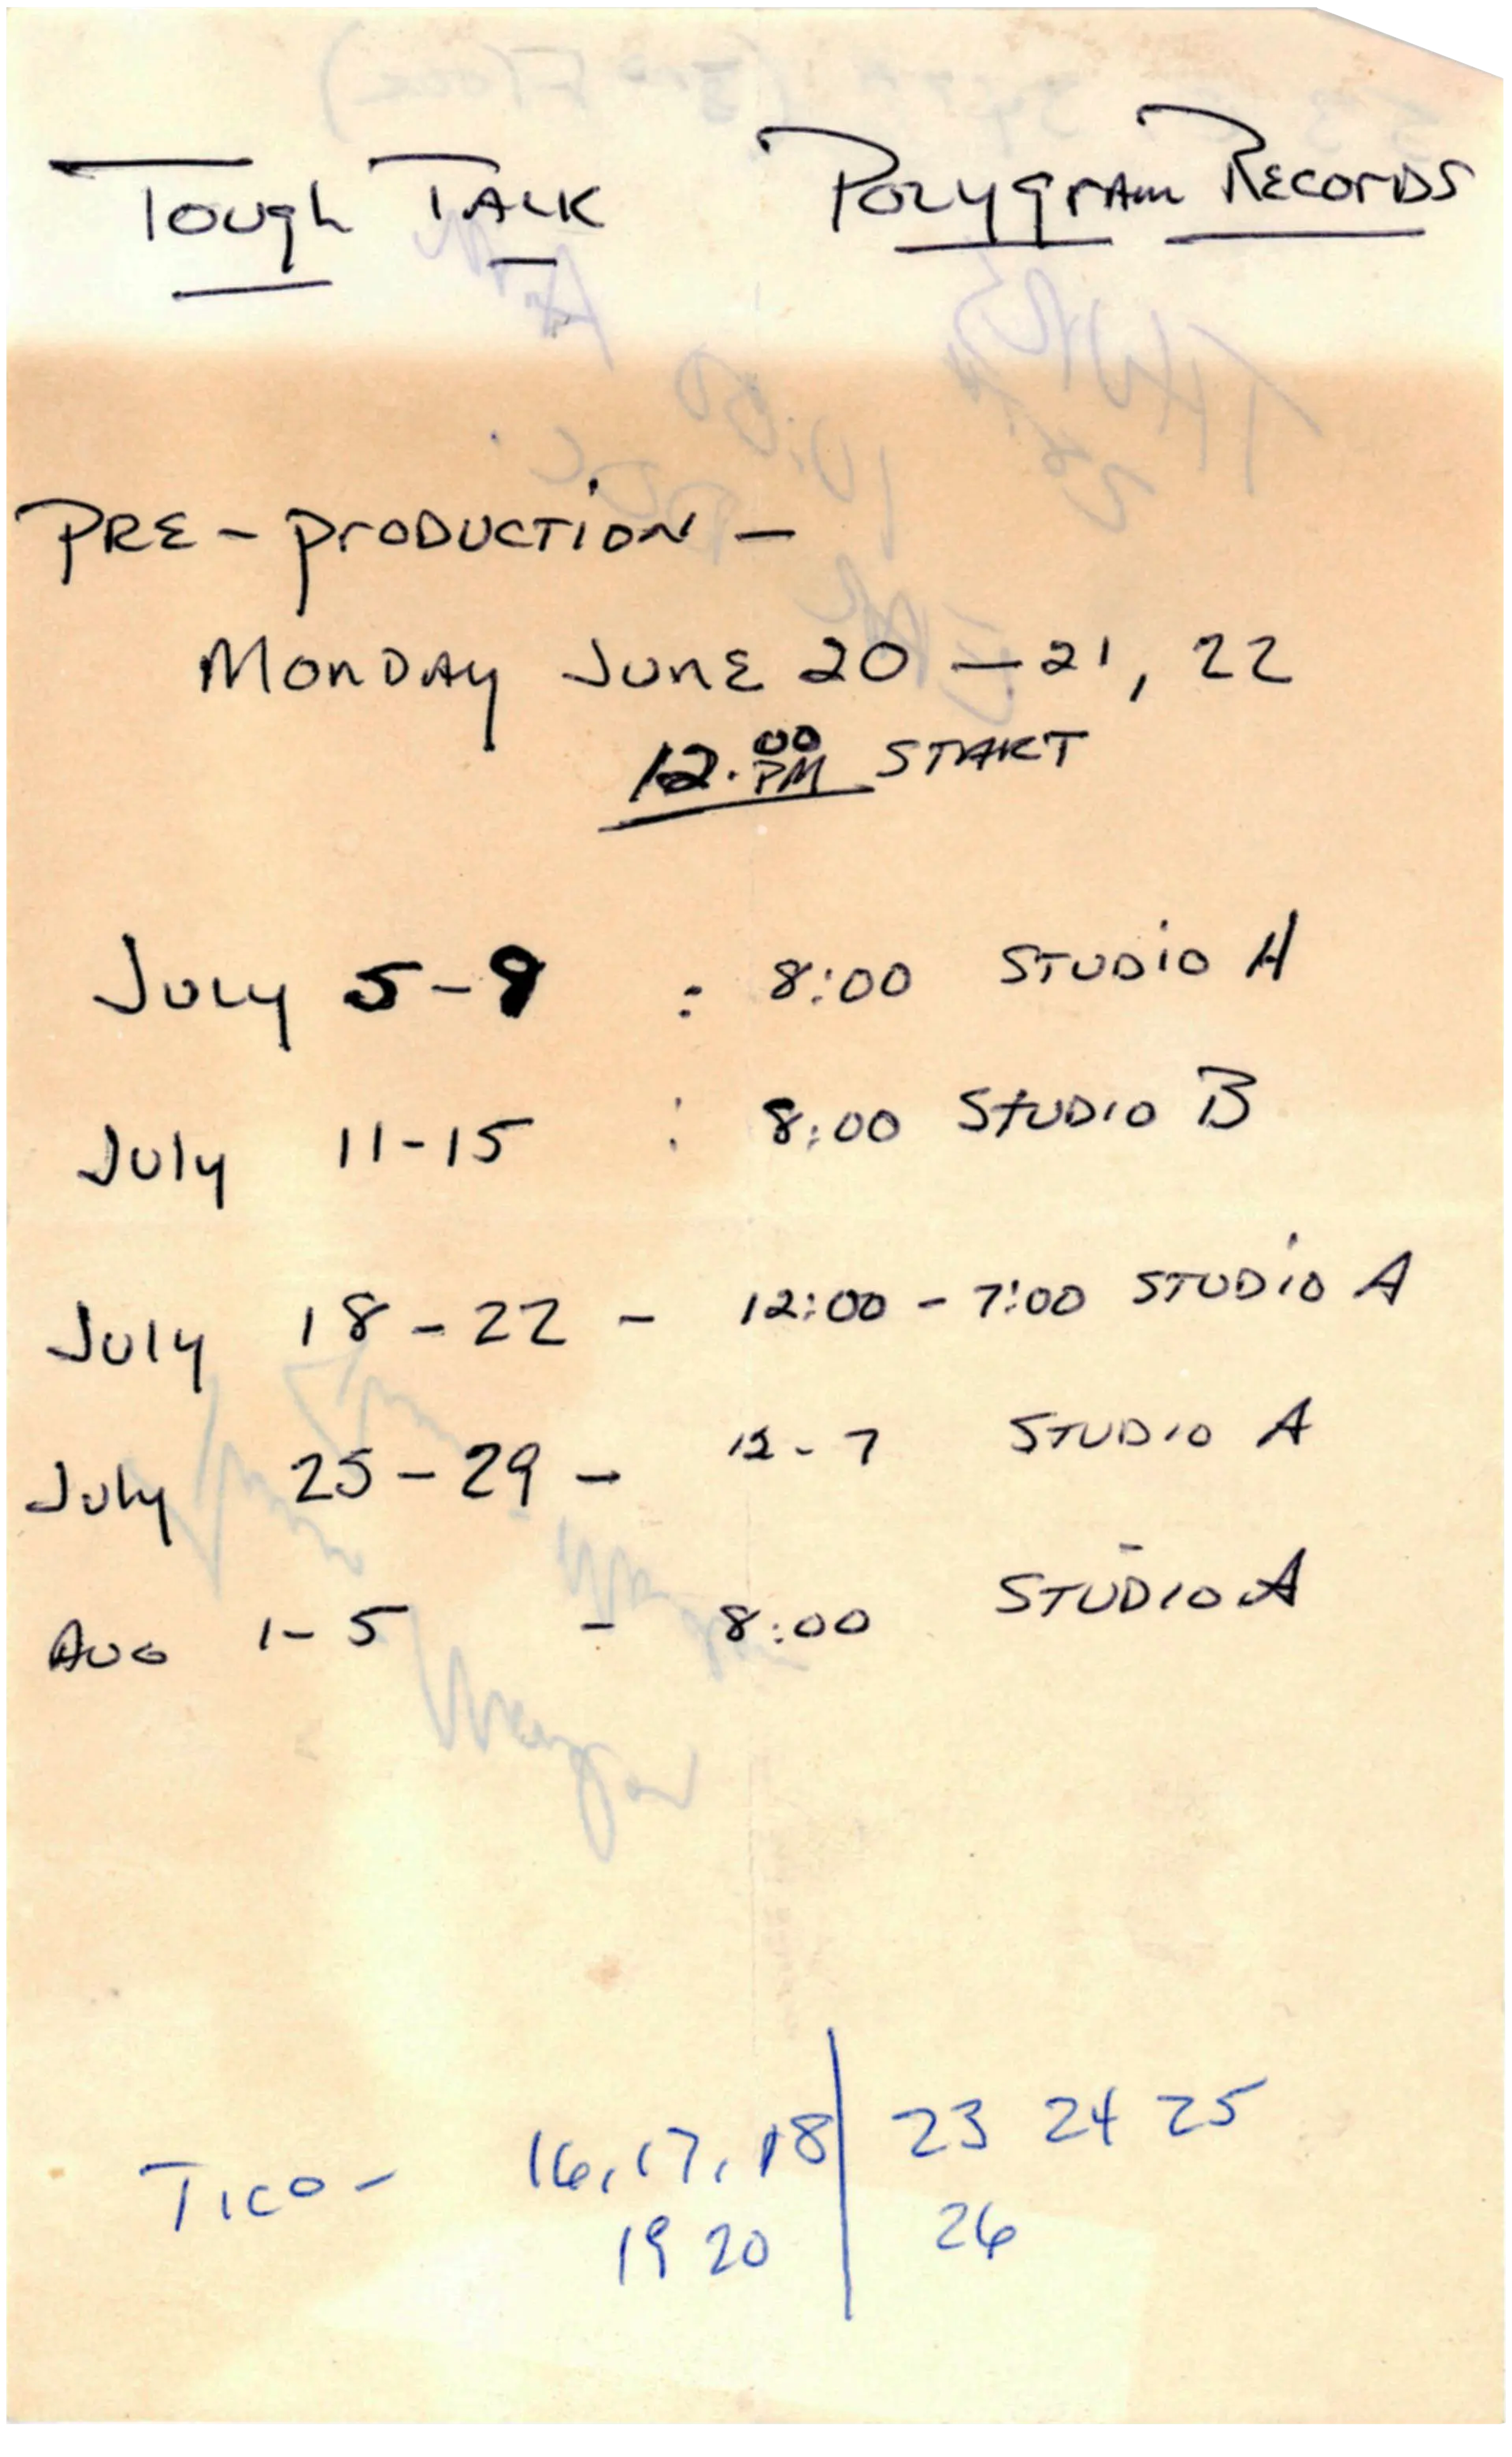 Tough Talk Polygram Records
Pre-production -
Monday June 20 - 21, 22
12:00 PM START
July 5-9 : 8:00 Studio A
July 11-15 : 8:00 Studio B
July 18-22 - 12:00 - 7:00 Studio A
July 25-29 - 12-7 Studio A
Aug 1-5 - 8:00 Studio A
Tico- 16, 17, 18 | 23 24 25
19 20 | 26